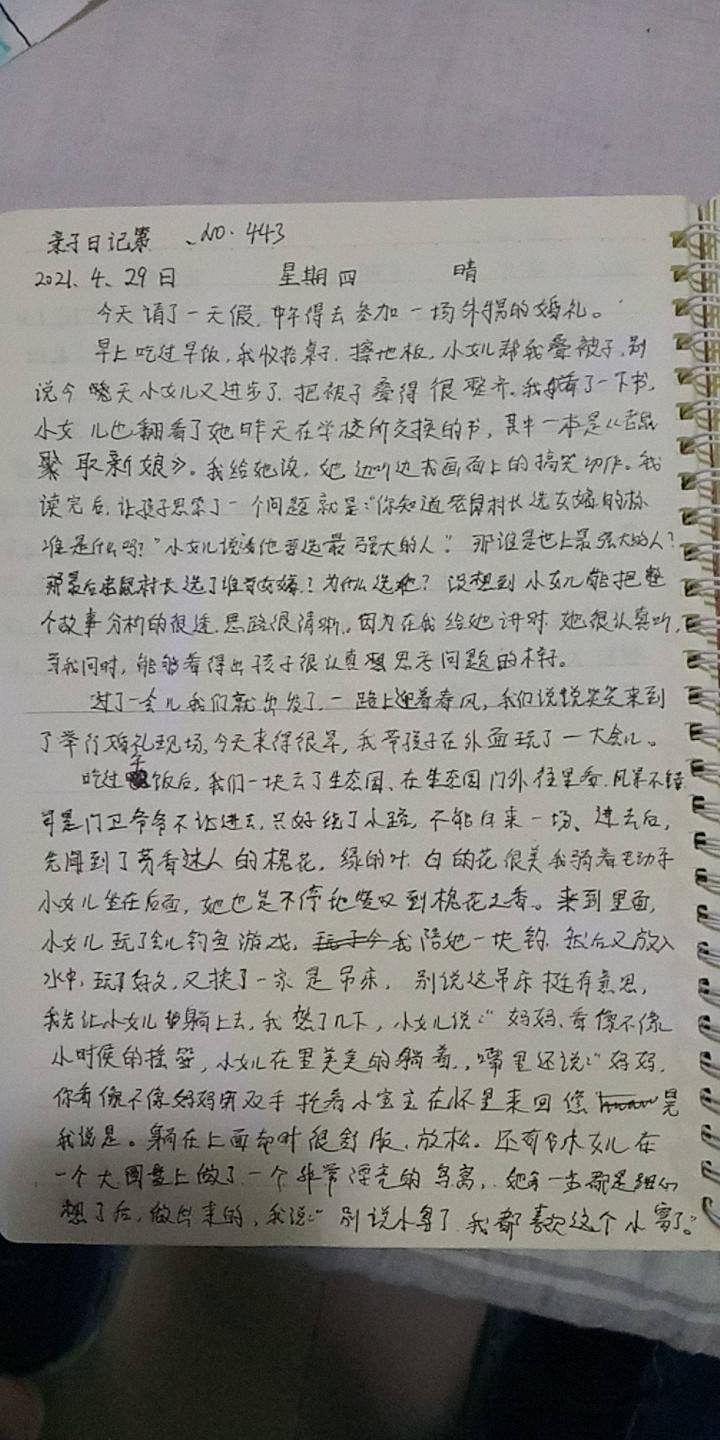 亲子日记第 、NO.443
2021、4、29日 星期四 晴
今天请了一天假,中午得去参加一场外甥的婚礼。
早上吃过早饭,我收拾桌子,擦地板,小女儿帮我叠被子,别
说今天小女儿又进步了,把被子叠得很整齐。我看了一下书,
小女儿也翻看了她昨天在学校所交换的书,其中一本是《老鼠
娶新娘》。我给她读,她边听边看画面上的搞笑动作。我
读完后,让孩子思索了一个问题就是:"你知道老鼠村长选女婿的标
准是什么吗?"小女儿说:"他要选最强大的人"。那谁是世上最强大的人?
那最后老鼠村长选了谁当女婿?为什么选他?没想到小女儿能把整
个故事分析的很透,思路很清晰。因为在我给她讲时她很认真听,
当我问时,能够看得出孩子很认真思考问题的样子。
过了一会儿我们就出发了,一路上迎着春风,我们说说笑笑来到
了举行婚礼现场,今天来得很早,我带孩子在外面玩了一大会儿。
吃过午饭后,我们一块去了生态园、在生态园门外往里看,风景不错
可是门卫爷爷不让进去,只好绕了小路,不能白来一场、进去后,
先闻到了芳香迷人的槐花,绿的叶白的花很美我骑着电动车
小女儿坐在后面,她也是不停地赞叹到槐花之香。来到里面,
小女儿玩了会儿钓鱼游戏,我陪她一块钓,然后又放入
水中,玩了好久,又换了一家是吊床,别说这吊床挺有意思,
我先让小女儿躺上去,我悠了几下,小女儿说:"妈妈,看像不像
小时侯的摇篮,小女儿在里美美的躺着,嘴里还说:"妈妈,
你看像不像妈妈用双手托着小宝宝在怀里来回悠晃
我说是。躺在上面却时很舒服,放松。还有小女儿在
一个大圆盘上做了一个非常漂亮的鸟窝,她每一步都是细心
想了后,做出来的,我说:"别说小鸟了我都喜欢这个小窝了。"